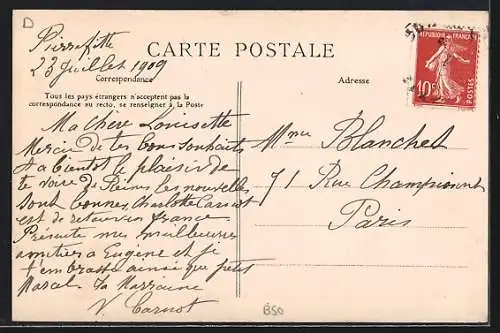 D
Pierrefitte
23 Juillet 1909
CARTE POSTALE
Correspondance
Adresse
Tous les pays étrangers n'acceptent pas la
correspondance au recto, se renseigner à la Poste
RÉPUBLIQUE FRANÇAISE
10c
POSTES
Ma chère Louisette
Merci de tes bons souhaits
à bientôt le plaisir de
te voir de Reims les nouvelles
sont bonnes, Charlotte Carnot
est de retour en france
Présente mes meilleures
amitiés à Eugène et je
t'embrasse ainsi que petit
Marcel ta Marraine
V. Carnot
Mme Blanchet
71 Rue Championnet
Paris
B50